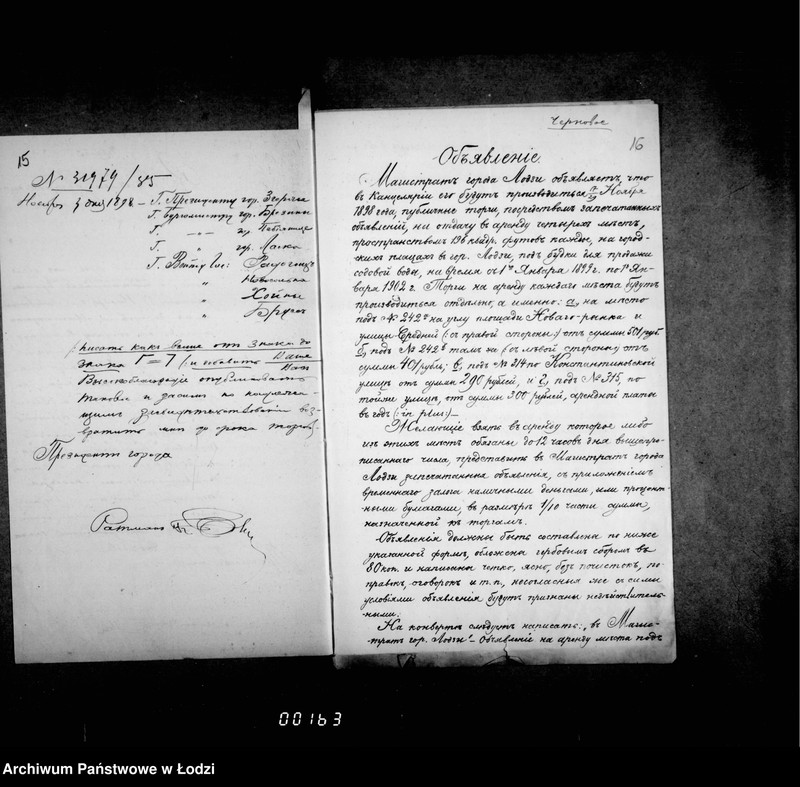 15
№ 31979/85
Ноября 3 дня 1898 – Г. Президенту гор. Згержа
Г. Бургомистру гор. Брезины
Г. –„– „ Пабianице
Г. „ гор. Ласка
Г. Войту Гм:
„
„ Хойны
„ Брус
писать какъ выше отъ знака до
знака Г=7 и
опубликовать
таковое и
до срока торговъ
Президентъ города
Ратманъ
Черновое
16
Объявленіе.
Магистратъ города Лодзи объявляетъ, что
въ Канцеляріи его будутъ производиться Ноября
1898 года, публичные торги, посредствомъ запечатанныхъ
объявленій, на отдачу въ аренду четырехъ мѣстъ,
пространствомъ 196 квадр. футовъ каждое, на город-
скихъ плацахъ въ гор. Лодзи, подъ будки для продажи
содовой воды, на время съ 1го Января 1899 г. по 1е Ян-
варя 1902 г. Торги на аренду каждаго мѣста будутъ
производиться отдѣльно, а именно: а, на мѣсто
подъ № 242а на углу площади Новаго-рынка и
улицы Средней (: съ правой стороны:) отъ суммы 501 руб.
б, подъ № 242б тамъ же (: съ лѣвой стороны:) отъ
суммы 401 рубль; в, подъ № 314 по Константиновской
улицѣ отъ суммы 290 рублей, и г, подъ № 315, по
тойже улицѣ, отъ суммы 300 рублей, арендной платы
въ годъ (: in plus:) –
Желающіе взять въ аренду которое либо
изъ этихъ мѣстъ обязаны до 12 часовъ дня вышепро-
писаннаго числа, представить въ Магистратъ города
Лодзи запечатанныя объявленія, съ приложеніемъ
временнаго залога наличными деньгами, или процент-
ными бумагами, въ размѣрѣ 1/10 части суммы,
назначенной къ торгамъ.
Объявленія должны быть составлены по ниже
указанной формѣ, обложены гербовымъ сборомъ въ
80 коп. и написаны четко, ясно, безъ поистокъ, по-
правокъ, оговорокъ и т.п., несогласныя же съ сими
условіями объявленія будутъ признаны недѣйствитель-
ными.
На конвертѣ слѣдуетъ написать: „въ Маги-
стратъ гор. Лодзи" – Объявленіе на аренду мѣста подъ
00163
Archiwum Państwowe w Łodzi